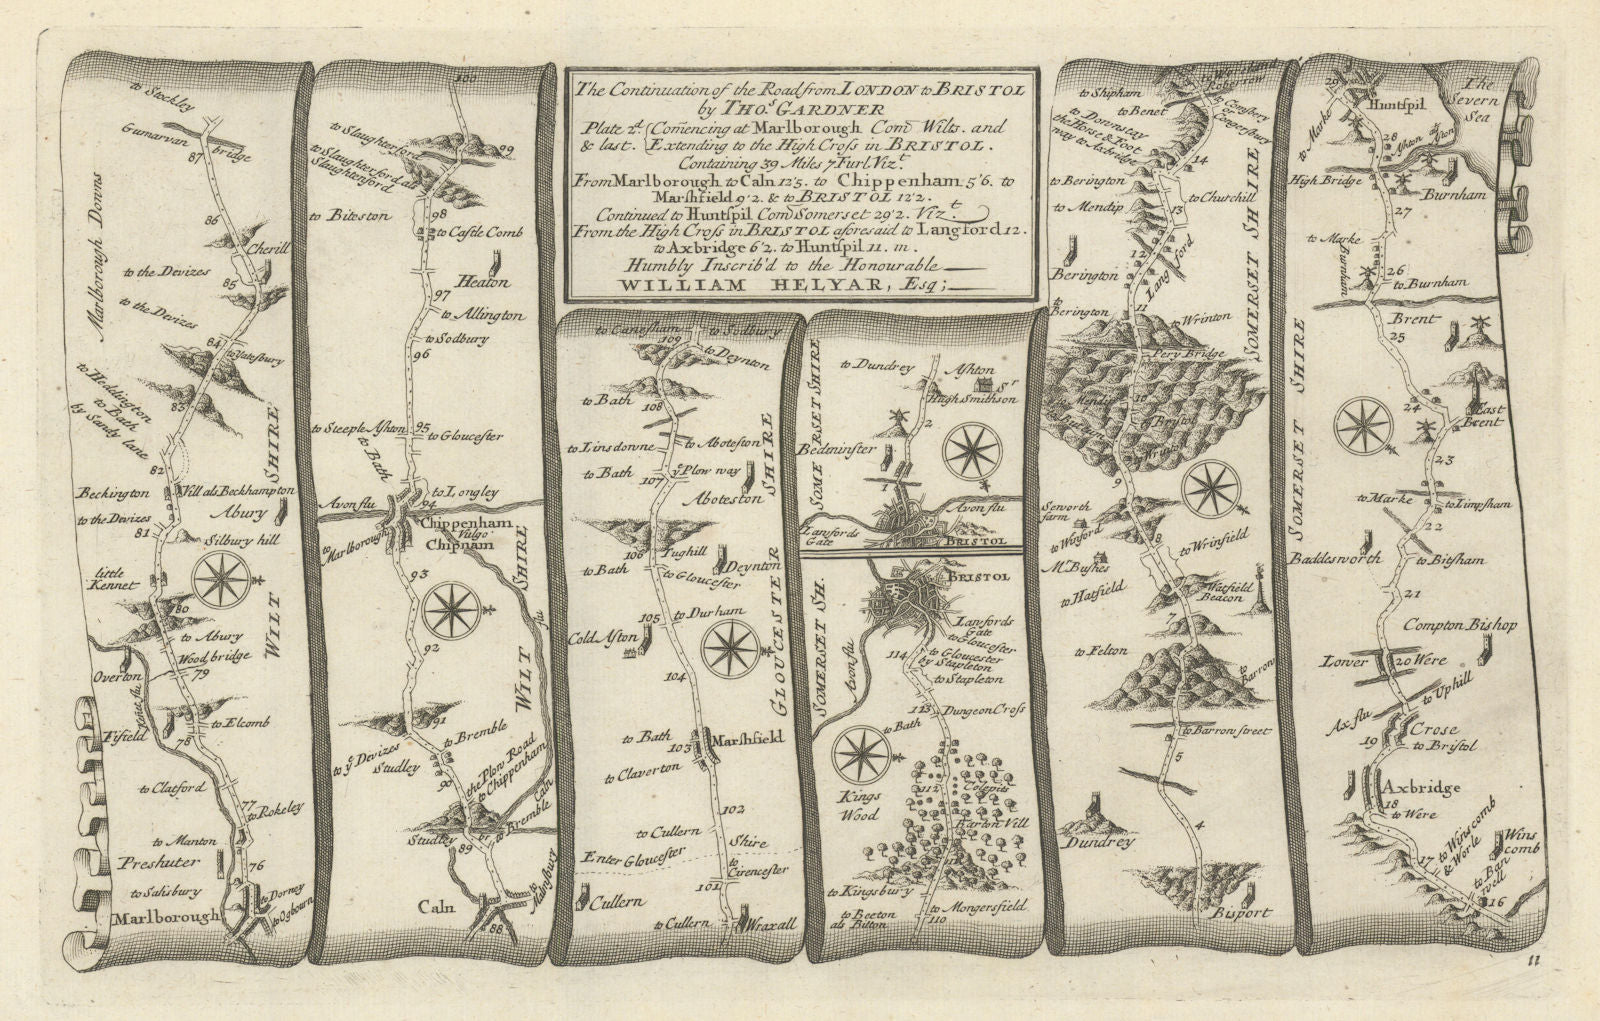 The Continuation of the Road from LONDON to BRISTOL
by THO.S GARDNER
Plate 2d. { Com̄encing at Marlborough Com̄ Wilts. and
& last. { Extending to the High Cross in BRISTOL.
Containing 39 Miles 7 Furl. Viz.t
From Marlborough to Caln 12'5. to Chippenham 5'6. to
Marshfield 9'2. & to BRISTOL 12'2.
Continued to Huntspil Com̄ Somerset 29'2. Viz.t
From the High Cross in BRISTOL aforesaid to Langford 12.
to Axbridge 6'2. to Huntspil 11. m.
Humbly Inscrib'd to the Honourable
WILLIAM HELYAR, Esq;
to Stockley
Gumarvan bridge
87
Marlborough Downs
86
Cherill
to the Devizes
85
to the Devizes
84
to Yatesbury
to Heddington
to Bath
by Sandy lane
83
WILT SHIRE
82
Beckington
Vill als Beckhampton
to the Devizes
Abury
81
Silbury hill
little
Kennet
80
to Abury
Wood bridge
79
Overton
Kenet flu
to Elcomb
Fifield
78
to Clatford
77
to Rokeley
to Manton
Preshuter
76
to Salisbury
to Dorney
Marlborough
to Ogbourn
100
to Slaughterford
99
to Slaughterford als
Slaughtenford
to Biteston
98
to Castle Comb
Heaton
97
to Allington
to Sodbury
96
to Steeple Ashton
95
to Gloucester
to Bath
to Longley
Avon flu
94
Chippenham
Vulgo
Chipnam
to Marlborough
93
WILT SHIRE
flu
92
91
to Bremble
to ye Devizes
Studley
the Plow Road
to Chippenham
90
Caln
Studley
br
to Bremble
89
Caln
to Malmsbury
88
to Canesham
to Sodbury
109
to Deynton
to Bath
108
to Linsdowne
to Aboteston
to Bath
ye Plow way
107
Aboteston
106
Tughill
to Bath
Deynton
to Gloucester
105
to Durham
Cold Aston
GLOUCESTER SHIRE
104
to Bath
103
Marshfield
to Claverton
102
to Cullern
Shire
Enter Gloucester
to
Cirencester
101
Cullern
to Cullern
Wraxall
SOMERSET SHIRE
to Dundrey
Ashton
Sr
Hugh Smithson
2
Bedminster
1
Avon flu
Lanfords
Gate
BRISTOL
BRISTOL
SOMERSET SH.
Lanfords
Gate
to Gloucester
114
to Gloucester
by Stapleton
to Stapleton
Avon flu
113
Dungeon Cross
to Bath
Kings
Wood
112
Colepits
Barton Vill
to Kingsbury
to Mongersfield
to Beeton
als Bitton
110
to Shipham
to Benet
to Downstay
the Horse & Foot
way to Axbridge
14
to Berington
to Churchill
to Mendip
13
12
Lang ford
Berington
to
Berington
11
Wrinton
Pery Bridge
SOMERSET SHIRE
to Mendip
10
to Bristol
9
Seworth
farm
to Winford
8
to Wrinfield
Mr Bushes
to Hatfield
Watfield
Beacon
7
to Felton
to Barrow
to Barrow street
5
4
Dundrey
Bisport
29
Huntspil
The
Severn
Sea
to Marke
28
High Bridge
Burnham
27
to Marke
Burnham
26
to Burnham
Brent
25
SOMERSET SHIRE
24
East
Brent
23
to Marke
to Limpsham
22
Baddesworth
to Bitsham
21
Compton Bishop
Lower
20
Were
to Uphill
Ax flu
Crose
19
to Bristol
Axbridge
18
to Were
17
to Winscomb
& Worle
Wins
comb
to Ban
well
16
11